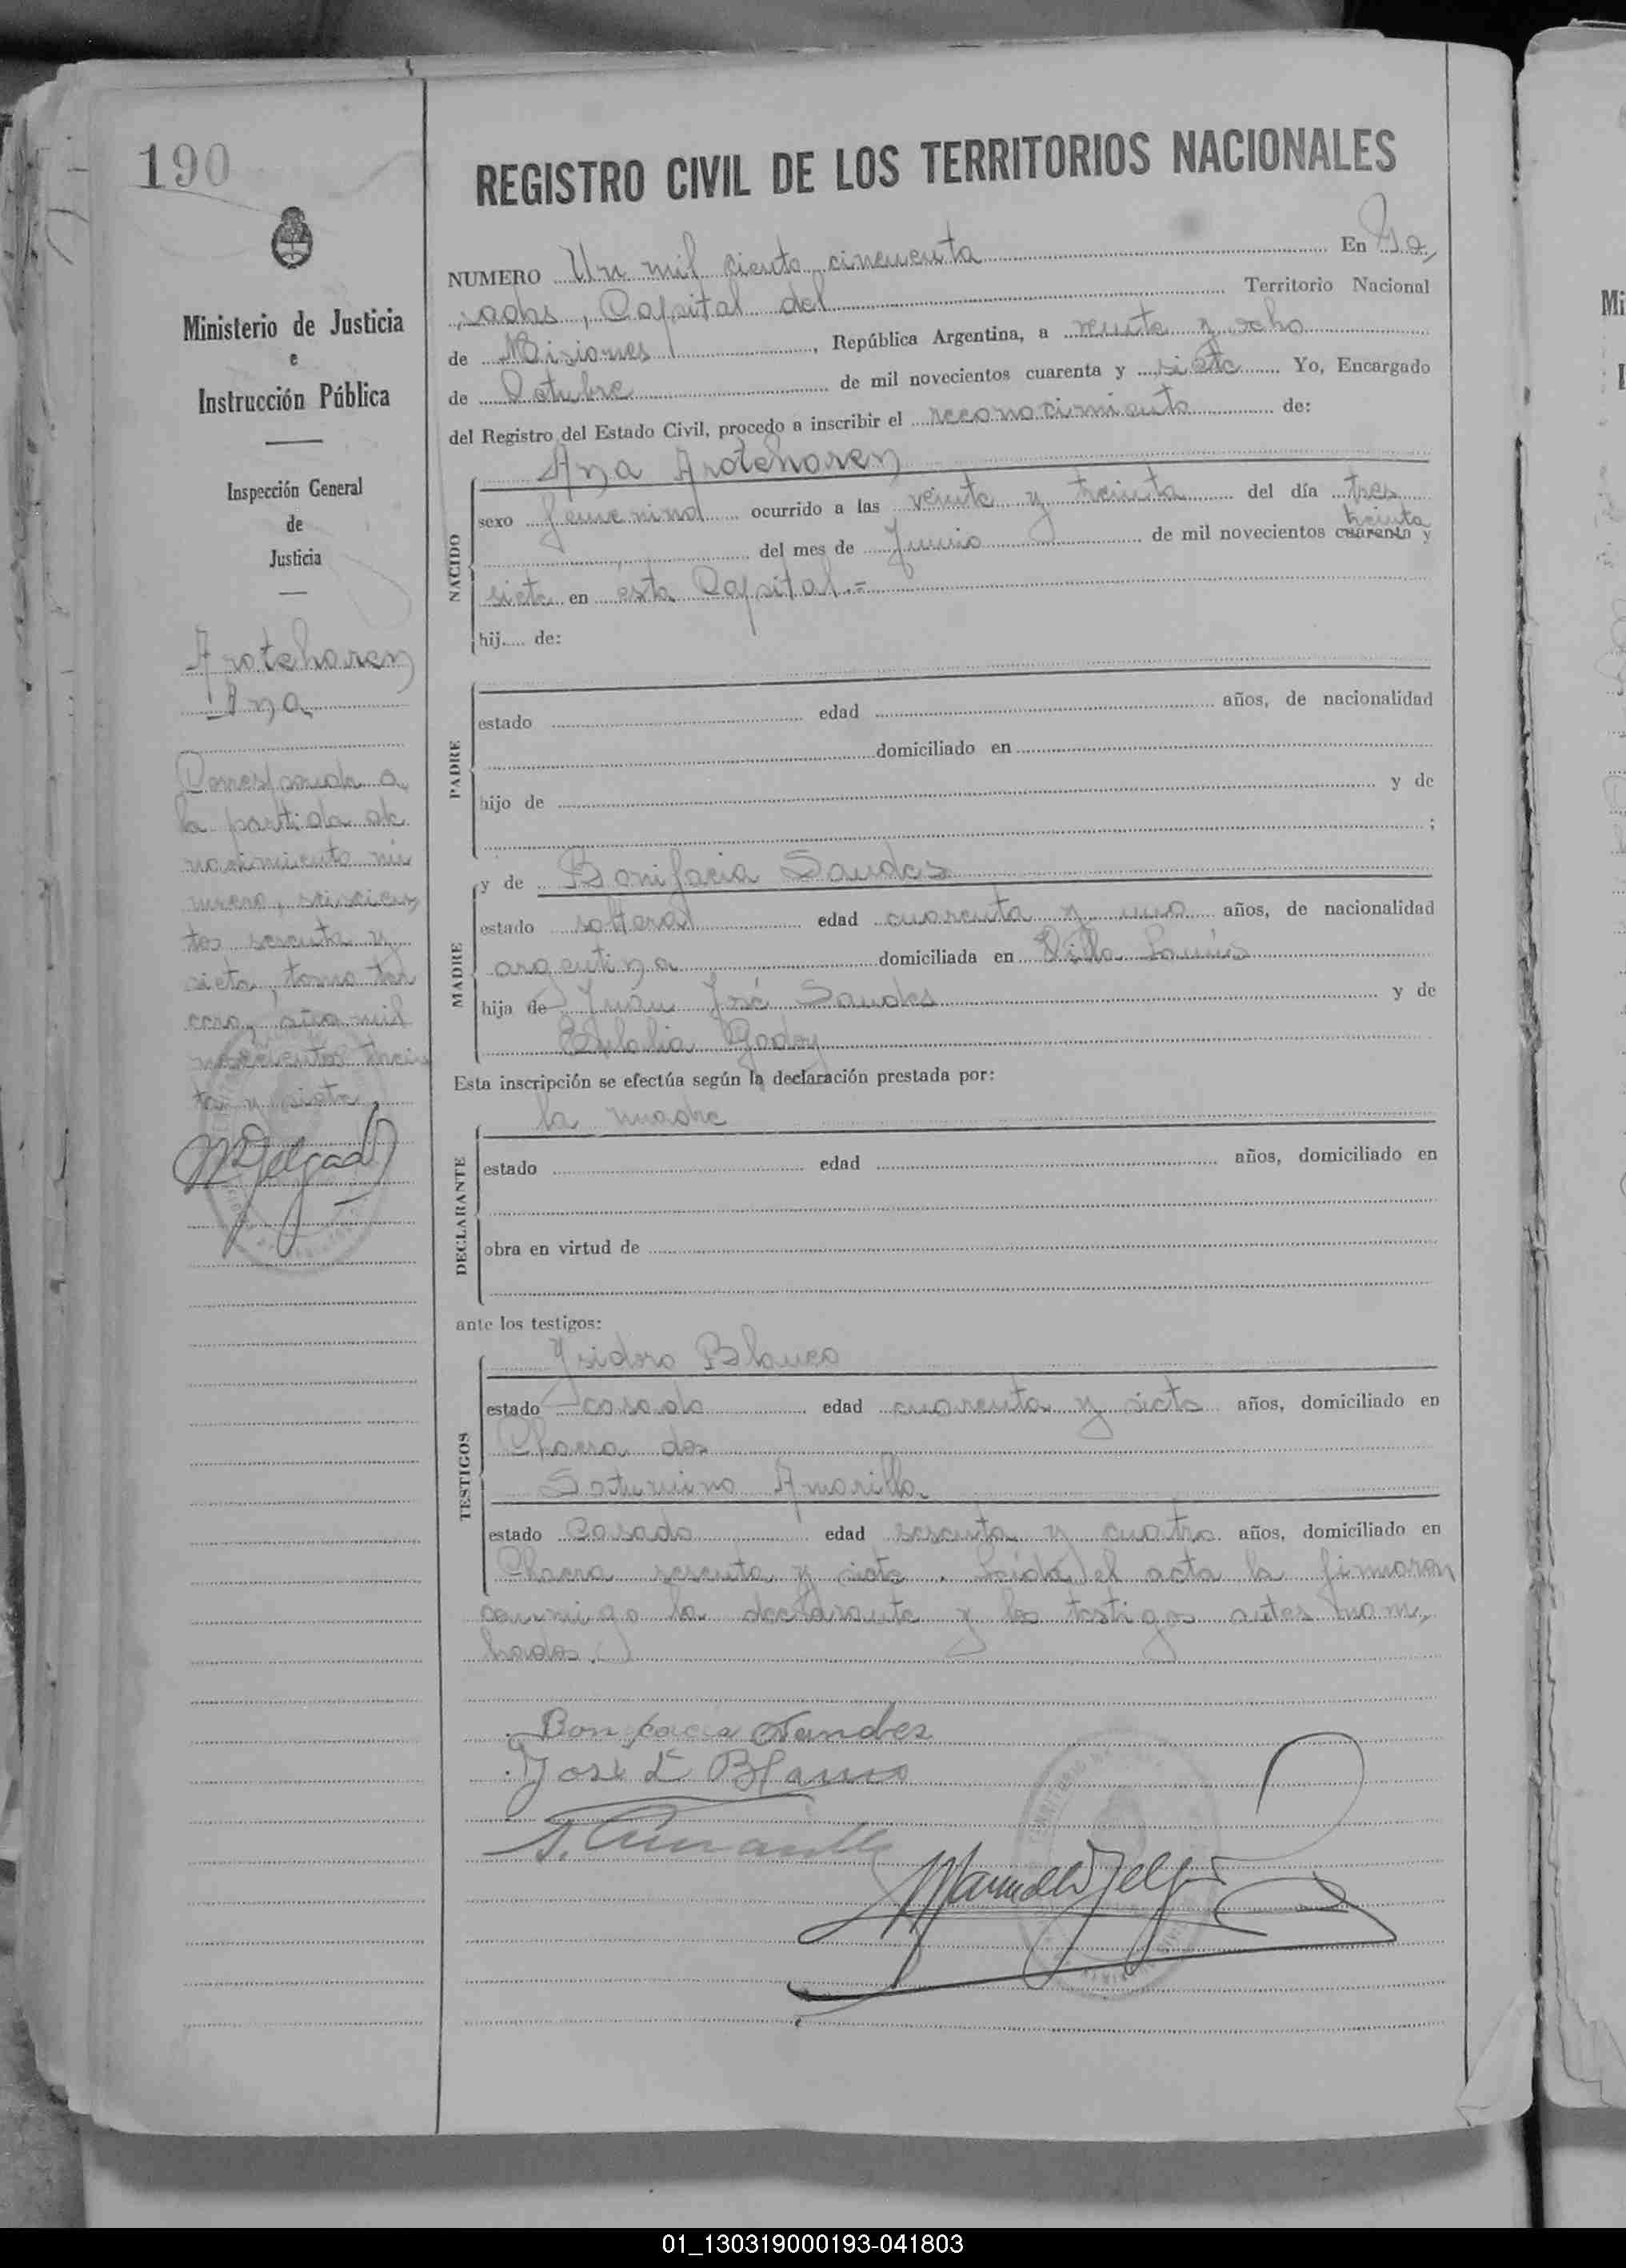 190
REGISTRO CIVIL DE LOS TERRITORIOS NACIONALES
Ministerio de Justicia
e
Instrucción Pública
Inspección General
de
Justicia
Arotcharen
Ana
Corresponde a
la partida de
nacimiento nú
mero, seiscien,
tos sesenta y
siete, tomo ter
cero, año mil
novecientos trein
ta y siete,
M Delgado
NUMERO Un mil ciento cincuenta En Po,
sadas, Capital del Territorio Nacional
de Misiones, República Argentina, a veinte y ocho
de Octubre de mil novecientos cuarenta y siete Yo, Encargado
del Registro del Estado Civil, procedo a inscribir el reconocimiento de:
Ana Arotcharen
NACIDO
sexo femenino ocurrido a las veinte y treinta del día tres
treinta
del mes de Junio de mil novecientos cuarenta y
siete en esta Capital.=
hij..... de:
PADRE
estado edad años, de nacionalidad
domiciliado en
hijo de y de
;
y de Bonifacia Sandes
MADRE
estado soltera edad cuarenta y uno años, de nacionalidad
argentina domiciliada en Villa Lanús
hija de Juan José Sandes y de
Eulalia Godoy
Esta inscripción se efectúa según la declaración prestada por:
la madre
DECLARANTE
estado edad años, domiciliado en
obra en virtud de
ante los testigos:
TESTIGOS
Ysidoro Blanco
estado casado edad cuarenta y siete años, domiciliado en
Chacra dos
Saturnino Amarilla
estado Casado edad sesenta y cuatro años, domiciliado en
Chacra sesenta y siete. Leída el acta la firmaron
conmigo la declarante y los testigos antes nom,
brados.
Bonifacia Sandes
José Blanco
S. Amarilla
Manuel Delgado
01_130319000193-041803